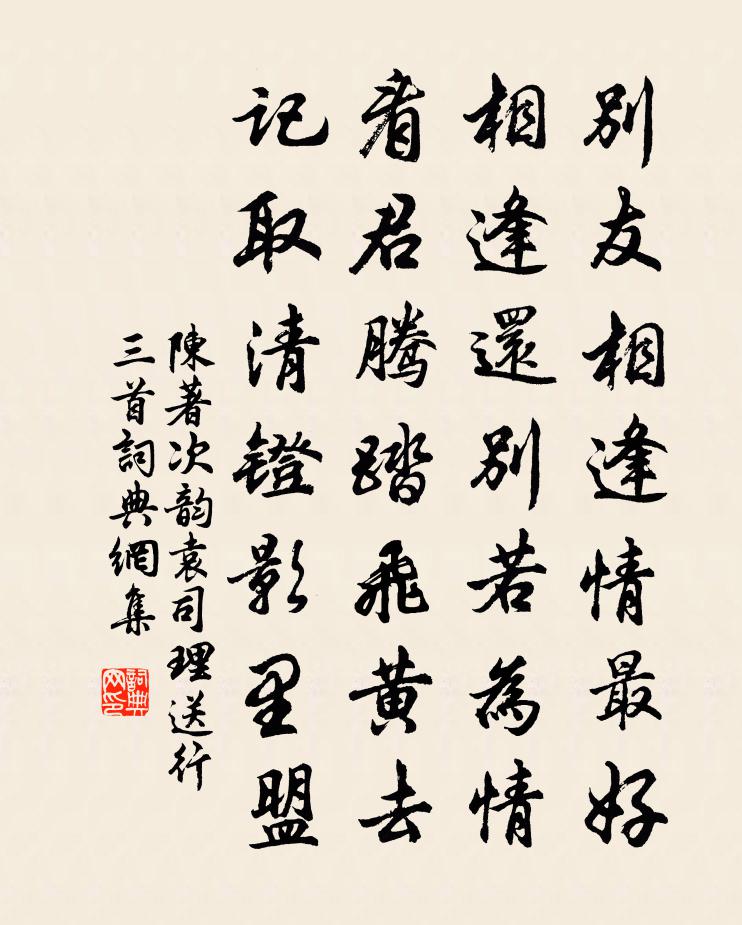 別友相逢情最好
相逢還別若為情
看君騰踏飛黃去
記取清鐙影里盟
陳著次韵袁司理送行
三首詞典網集
詞典網印